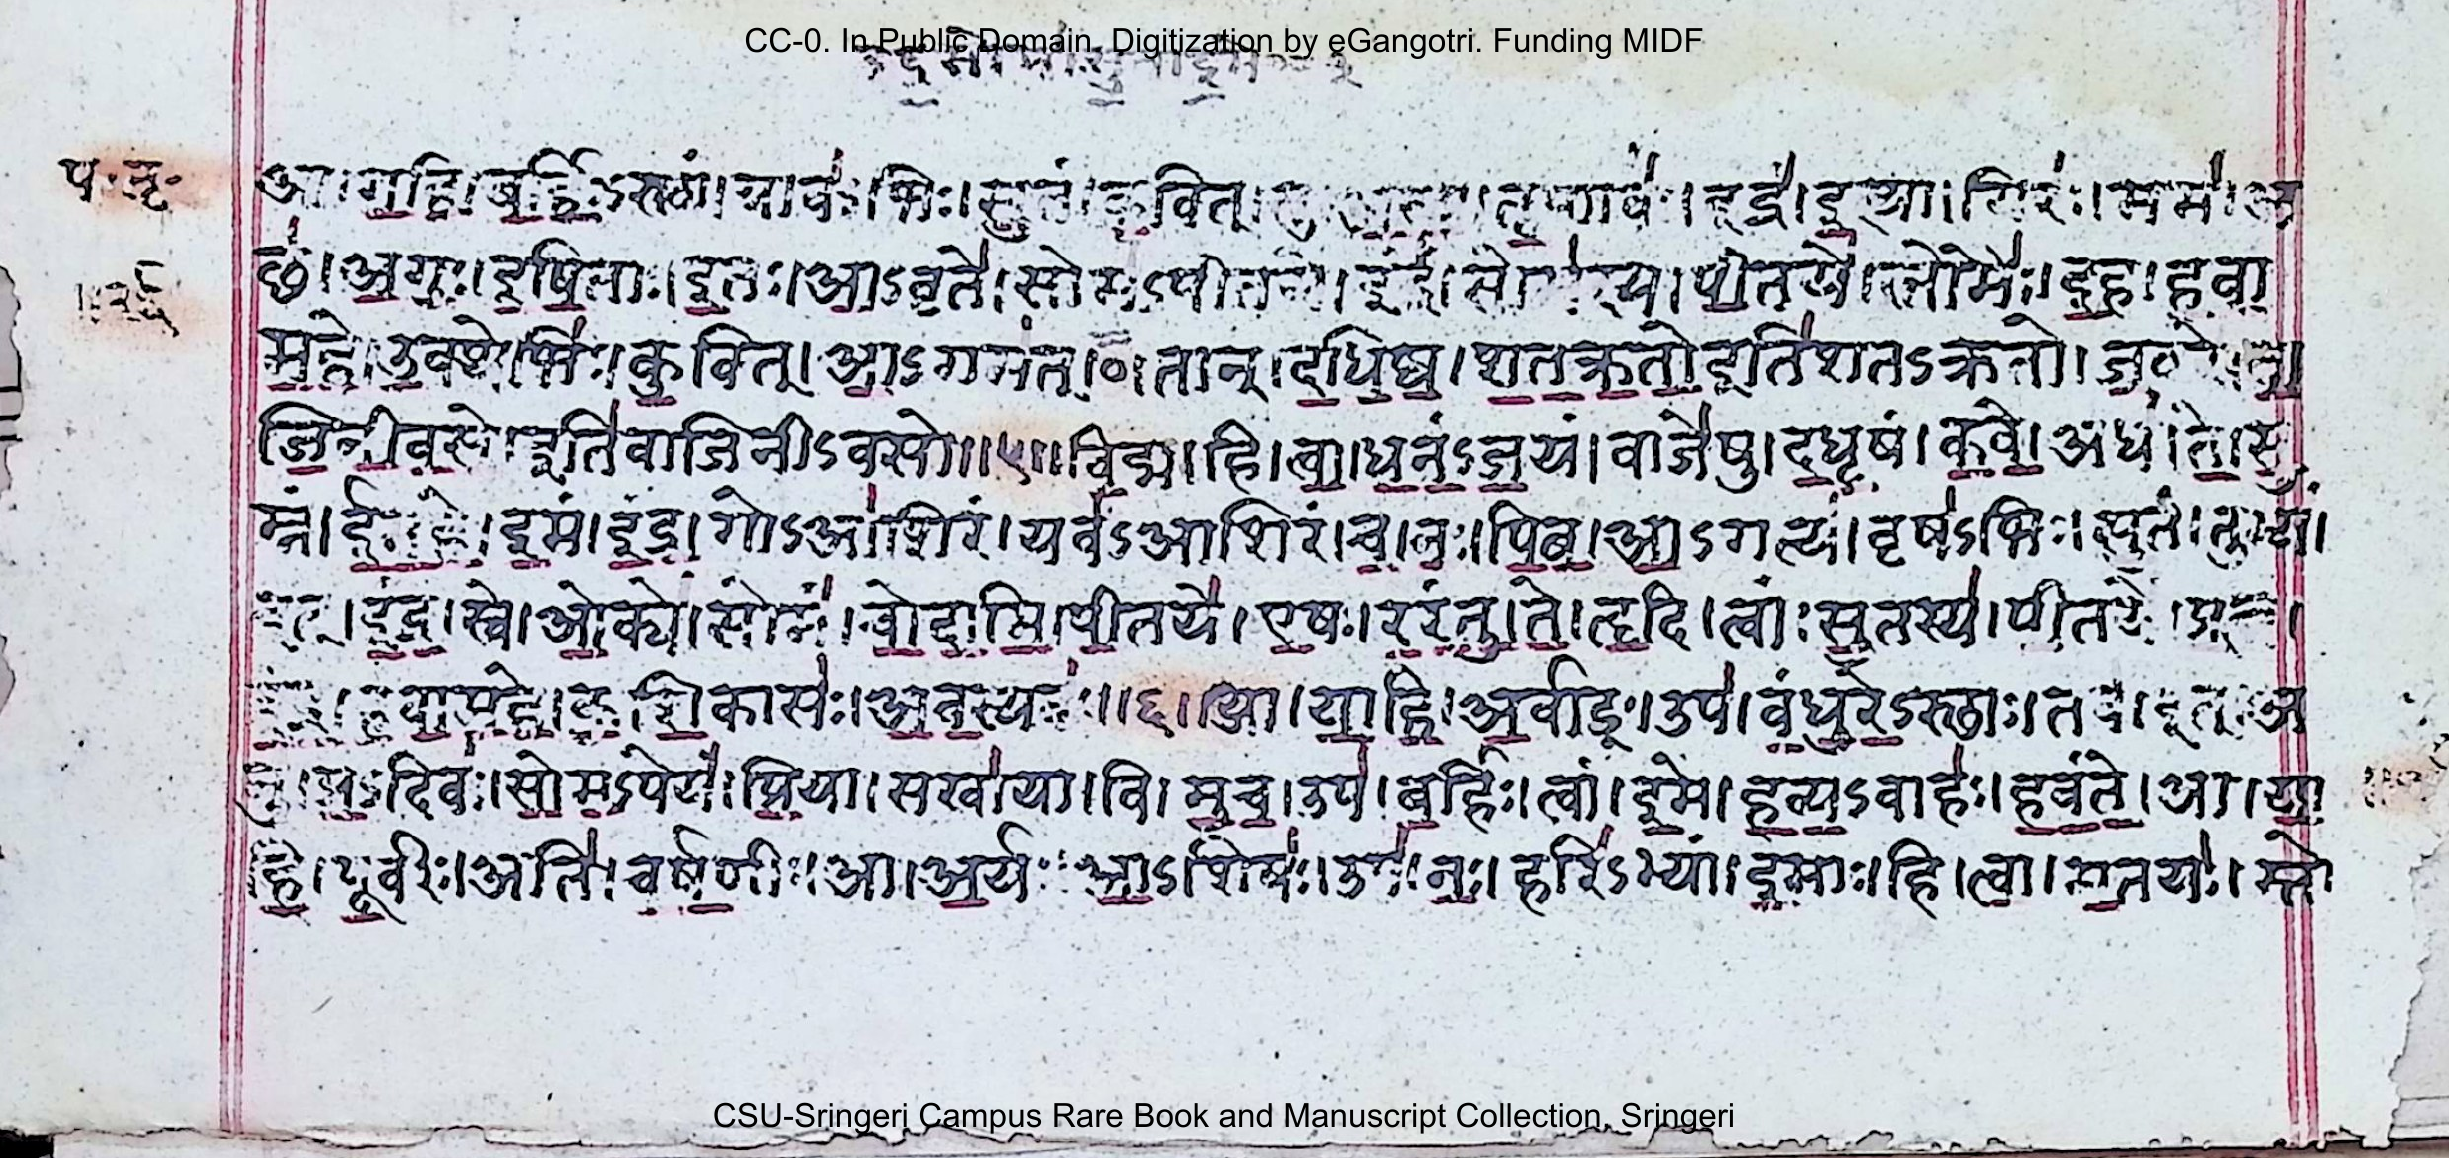 CC-0. In Public Domain. Digitization by eGangotri. Funding MIDF
प. तृ.
आ। ग॒हि॒। ब॒र्हिः॒ऽस्थां। ग्राव॑ऽभिः। सु॒तं। कु॒वित्। तृ॒प्णवः॑। इंद्रं॑। इ॒त्था। गिरः॑। मम॑। अ
च्छ॑। अ॒गुः॒। इ॒षि॒ताः। इ॒तः। आ॒ऽवृते॑। सोम॑ऽपीतये। इंद्रं॑। सोम॑स्य। पी॒तये॑। स्तोमैः॑। इ॒ह। ह॒वा॒
म॒हे॒। उ॒क्थेभिः॑। कु॒वित्। आ॒ऽगम॑त्। ० तान्। द॒धि॒ष्व॒। श॒त॒क्र॒तो॒ इति॑ शतऽक्रतो। ज॒ठरे॑। वा॒
जि॒नी॒व॒सो॒ इति॑ वाजिनीऽवसो॥ ५॥ वि॒द्म। हि। त्वा॒। ध॒नं॒ऽज॒यं। वाजे॑षु। द॒धृषं। क॒वे॒। अध॑। ते॒। सु॒
म्नं। ई॒म॒हे॒। इ॒मं। इं॒द्र॒। गोऽआ॑शिरं। यव॑ऽआशिरं। च॒। नः॒। पि॒ब॒। आ॒ऽगत्य॑। वृष॑ऽभिः। सु॒तं। तुभ्य॑।
इत्। इं॒द्र॒। स्वे। ओ॒क्ये॑। सोमं॑। चो॒दा॒मि॒। पी॒तये॑। ए॒षः। र॒रं॒तु॒। ते॒। हृ॒दि। त्वां। सु॒तस्य॑। पी॒तये॑। प्र॒त्नं।
इं॒द्र॒। ह॒वा॒म॒हे॒। कु॒शि॒कासः॑। अ॒व॒स्यवः॑॥ ६॥ आ। या॒हि॒। अ॒र्वाङ्। उप॑। वं॒धु॒रे॒ऽस्थाः। तव॑। इत्। अ
नु॑। प्र॒ऽदिवः॑। सो॒म॒ऽपेयं॑। प्रि॒या। सखा॑या। वि। मु॒च॒। उप॑। ब॒र्हिः। त्वां। इ॒मे। ह॒व्य॒ऽवाहः॑। ह॒वं॒ते॒। आ। या॒
हि॒। पू॒र्वीः। अति॑। च॒र्ष॒णीः। आ। अ॒र्यः। आ॒ऽशिषः॑। उप॑। नः॒। हरि॑ऽभ्यां। इ॒माः। हि। त्वा॒। म॒तयः॑। स्तो
CSU-Sringeri Campus Rare Book and Manuscript Collection, Sringeri